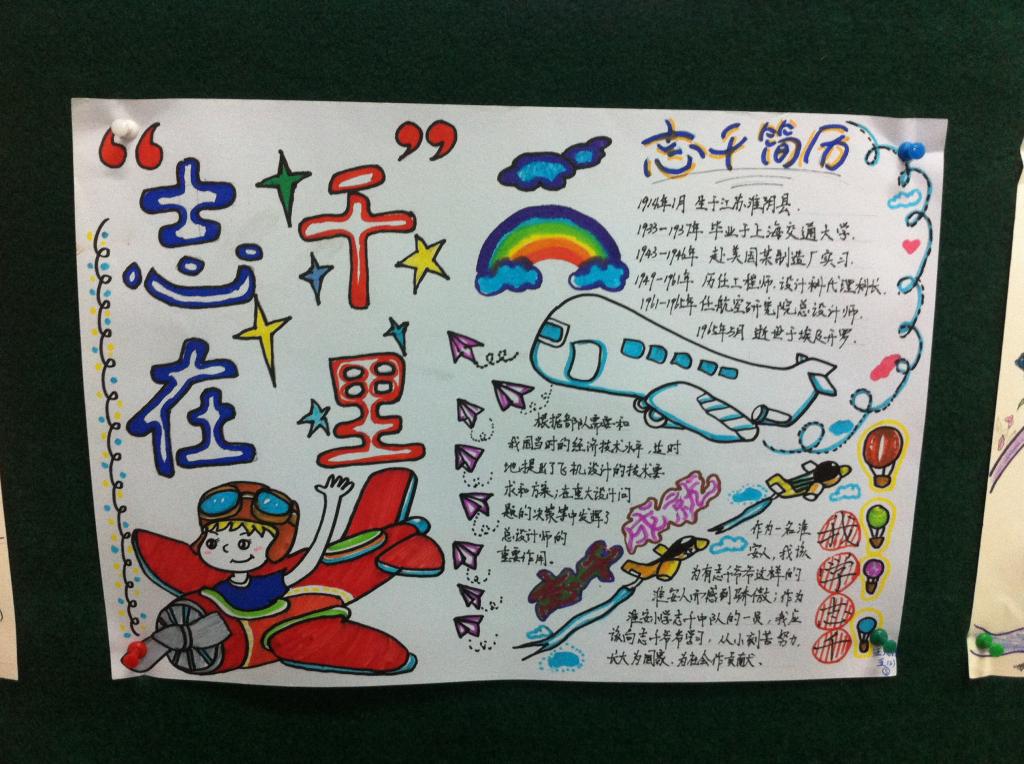 “志千
在里”
志千简历
1914年1月 生于江苏淮阴县.
1933-1937年 毕业于上海交通大学.
1943-1946年 赴美国某制造厂实习.
1949-1961年 历任工程师.设计科代理科长.
1961-1965年 任航空研究院总设计师.
1965年5月 逝世于埃及开罗.
根据部队需要和
我国当时的经济技术水平,并时
地提出了飞机设计的技术要
求和方案;在重大设计问
题的决策等中发挥了
总设计师的
重要作用.
成就
我学世
作为一名淮
安人,我该
为有志千爷爷这样的
淮安人而感到骄傲;作为
淮安小学志千中队的一员,我应
该向志千爷爷学习,从小刻苦努力
长大为国家.为社会作贡献.